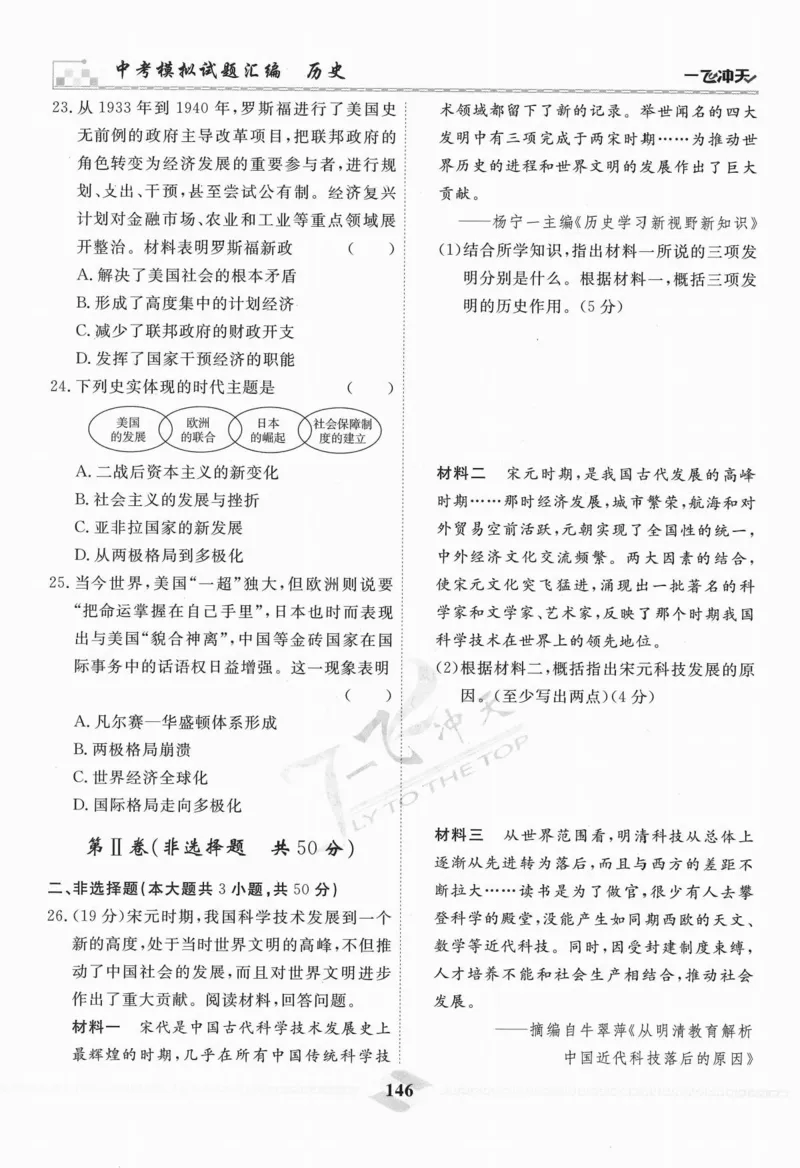 中考模拟试题汇编 历史
一飞冲天
23.从1933年到1940年,罗斯福进行了美国史
无前例的政府主导改革项目,把联邦政府的
角色转变为经济发展的重要参与者,进行规
划、支出、干预,甚至尝试公有制。经济复兴
计划对金融市场、农业和工业等重点领域展
开整治。材料表明罗斯福新政 ( )
A.解决了美国社会的根本矛盾
B.形成了高度集中的计划经济
C.减少了联邦政府的财政开支
D.发挥了国家干预经济的职能
24.下列史实体现的时代主题是 ( )
美国
的发展
欧洲
的联合
日本
的崛起
社会保障制
度的建立
A.二战后资本主义的新变化
B.社会主义的发展与挫折
C.亚非拉国家的新发展
D.从两极格局到多极化
25.当今世界,美国“一超”独大,但欧洲则说要
“把命运掌握在自己手里”,日本也时而表现
出与美国“貌合神离”,中国等金砖国家在国
际事务中的话语权日益增强。这一现象表明
( )
A.凡尔赛—华盛顿体系形成
B.两极格局崩溃
C.世界经济全球化
D.国际格局走向多极化
第Ⅱ卷(非选择题 共50分)
二、非选择题(本大题共3小题,共50分)
26.(19分)宋元时期,我国科学技术发展到一个
新的高度,处于当时世界文明的高峰,不但推
动了中国社会的发展,而且对世界文明进步
作出了重大贡献。阅读材料,回答问题。
材料一 宋代是中国古代科学技术发展史上
最辉煌的时期,几乎在所有中国传统科学技
术领域都留下了新的记录。举世闻名的四大
发明中有三项完成于两宋时期……为推动世
界历史的进程和世界文明的发展作出了巨大
贡献。
——杨宁一主编《历史学习新视野新知识》
(1)结合所学知识,指出材料一所说的三项发
明分别是什么。根据材料一,概括三项发
明的历史作用。(5分)
材料二 宋元时期,是我国古代发展的高峰
时期……那时经济发展,城市繁荣,航海和对
外贸易空前活跃,元朝实现了全国性的统一,
中外经济文化交流频繁。两大因素的结合,
使宋元文化突飞猛进,涌现出一批著名的科
学家和文学家、艺术家,反映了那个时期我国
科学技术在世界上的领先地位。
(2)根据材料二,概括指出宋元科技发展的原
因。(至少写出两点)(4分)
材料三 从世界范围看,明清科技从总体上
逐渐从先进转为落后,而且与西方的差距不
断拉大……读书是为了做官,很少有人去攀
登科学的殿堂,没能产生如同期西欧的天文、
数学等近代科技。同时,因受封建制度束缚,
人才培养不能和社会生产相结合,推动社会
发展。
——摘编自牛翠萍《从明清教育解析
中国近代科技落后的原因》
一飞冲天
FLY TO THE TOP
146